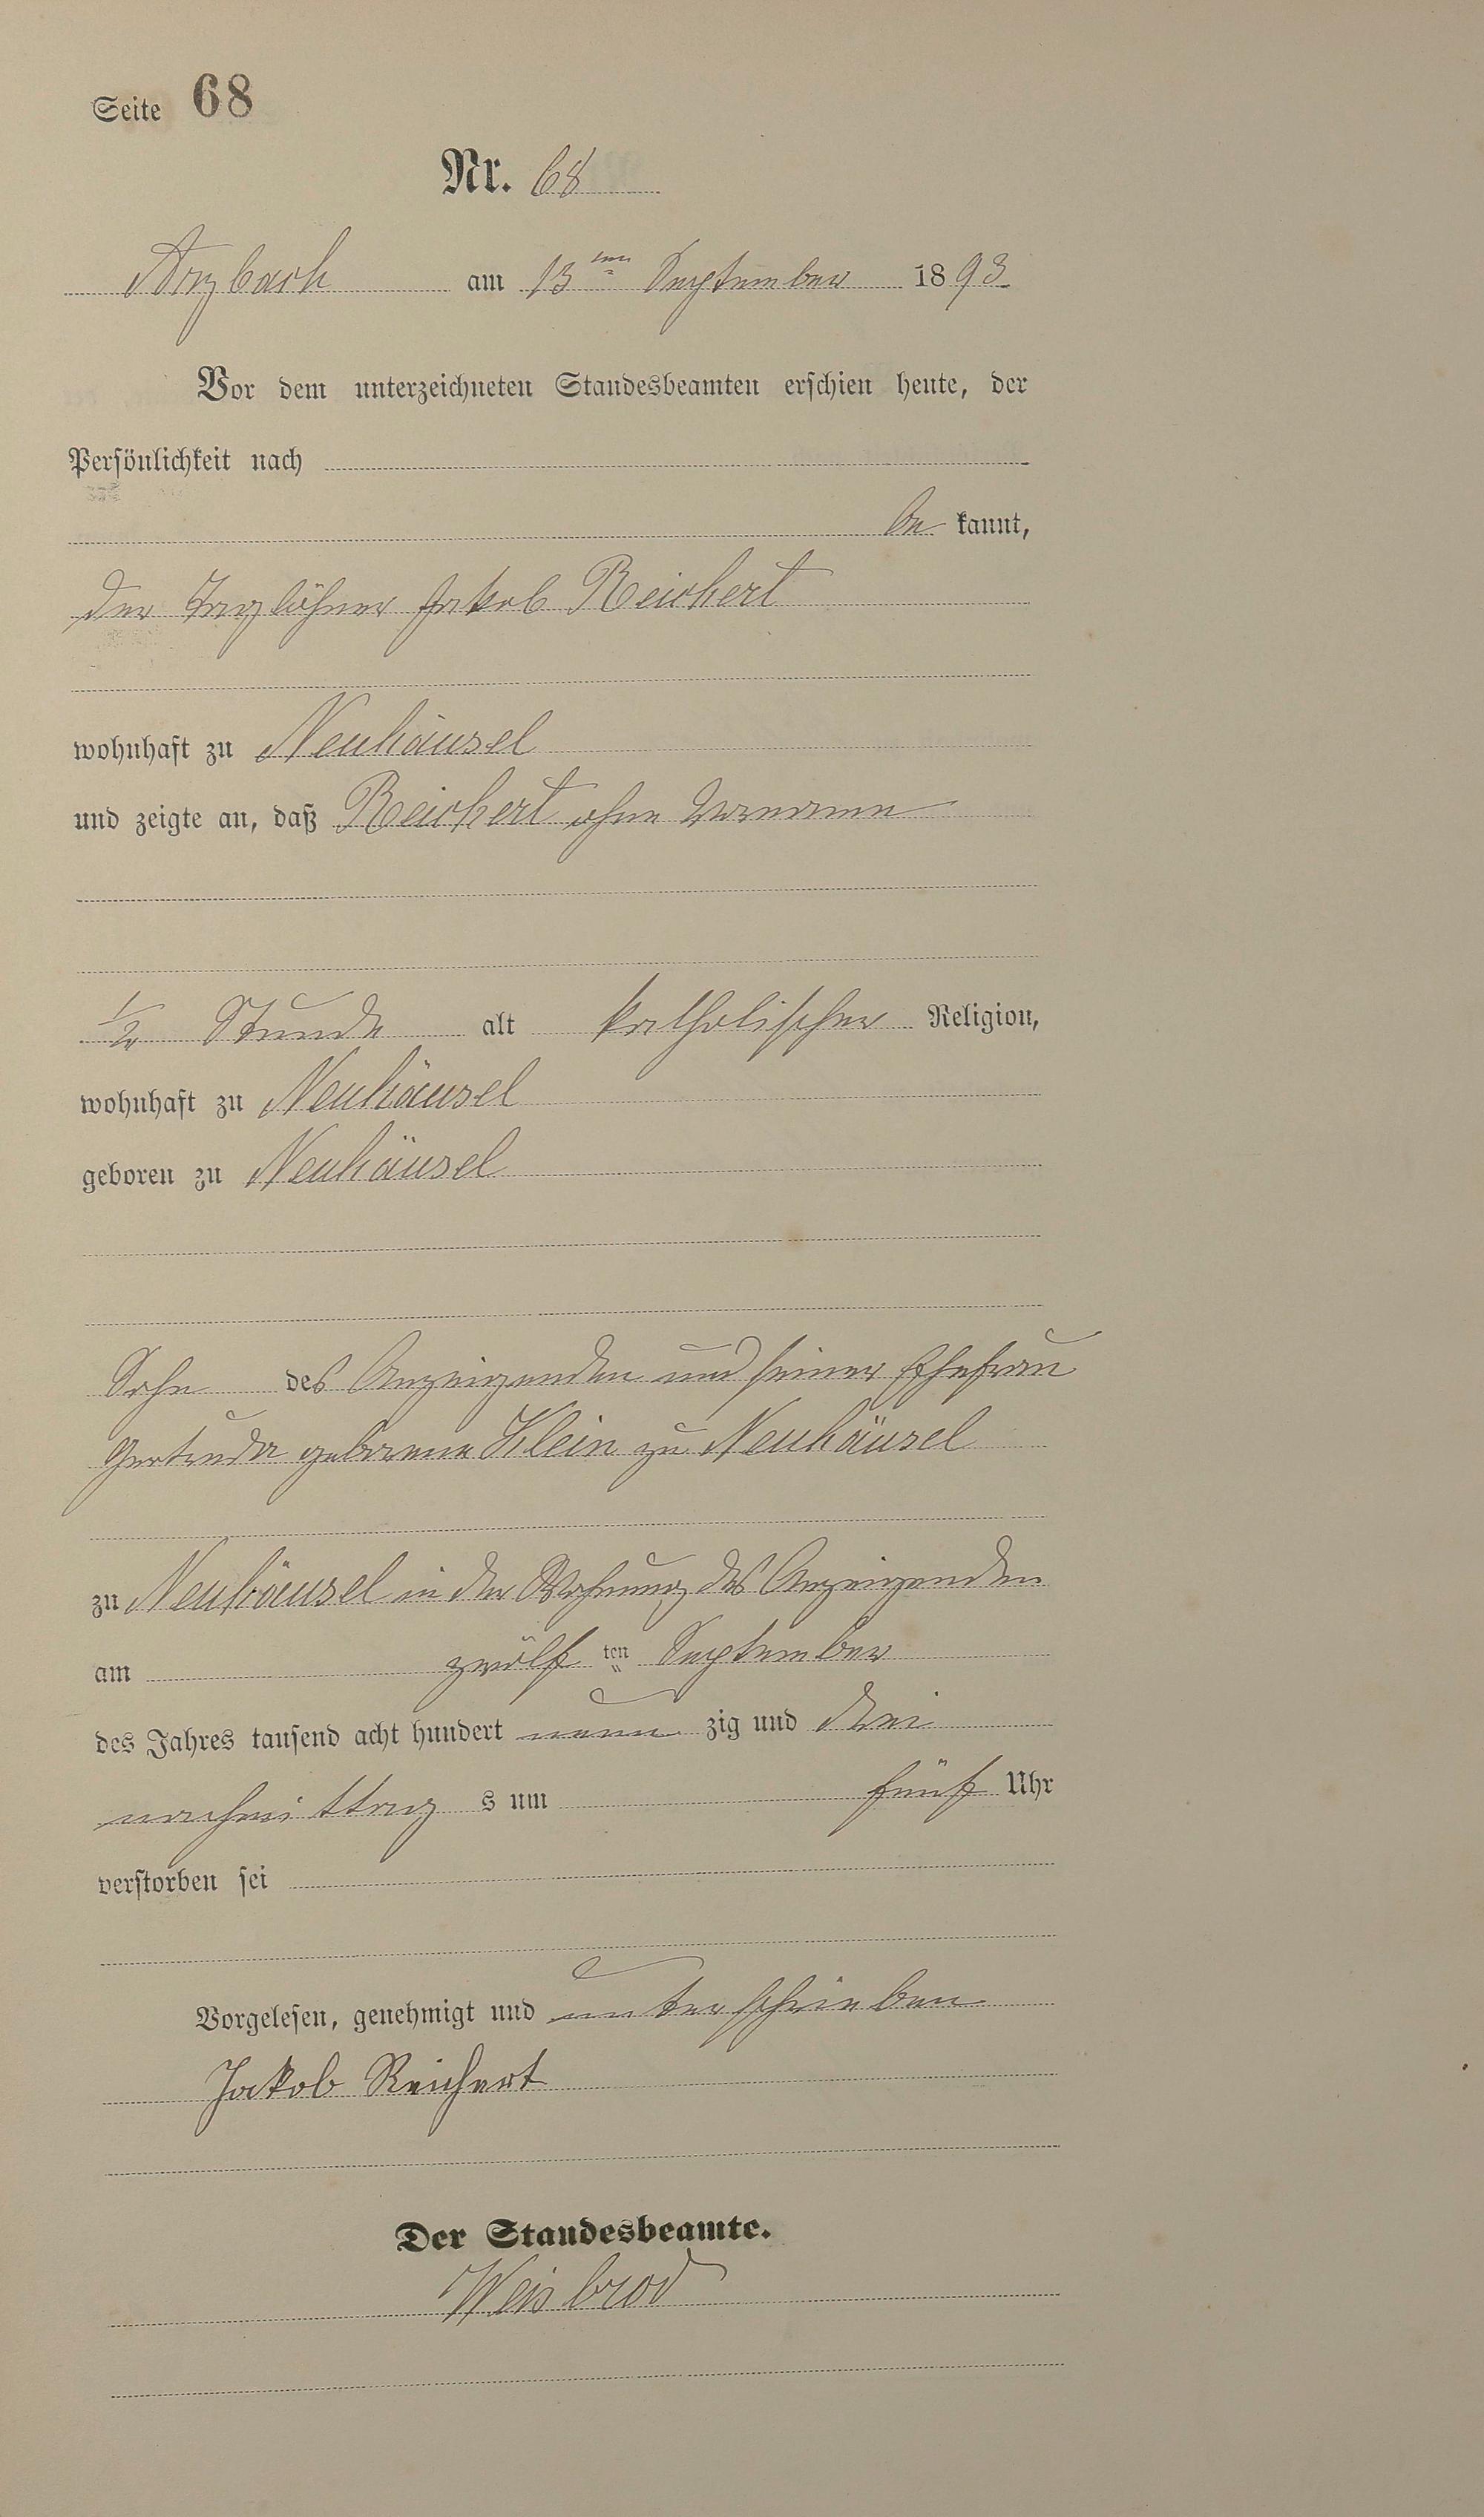 Seite 68
Nr. 68
Arzbach am 13ten September 1893
Vor dem unterzeichneten Standesbeamten erschien heute, der
Persönlichkeit nach
be kannt,
der Taglöhner Jakob Reichert
wohnhaft zu Neuhäusel
und zeigte an, daß Reichert ohne Vornamen
1/2 Stunde alt katholischer Religion,
wohnhaft zu Neuhäusel
geboren zu Neuhäusel
Sohn des Anzeigenden und seiner Ehefrau
Gertruda geborene Klein zu Neuhäusel
zu Neuhäusel in der Wohnung des Anzeigenden
am zwölf ten September
des Jahres tausend acht hundert neun zig und drei
nachmittag s um fünf Uhr
verstorben sei
Vorgelesen, genehmigt und unterschrieben
Jakob Reichert
Der Standesbeamte.
Weisbrod